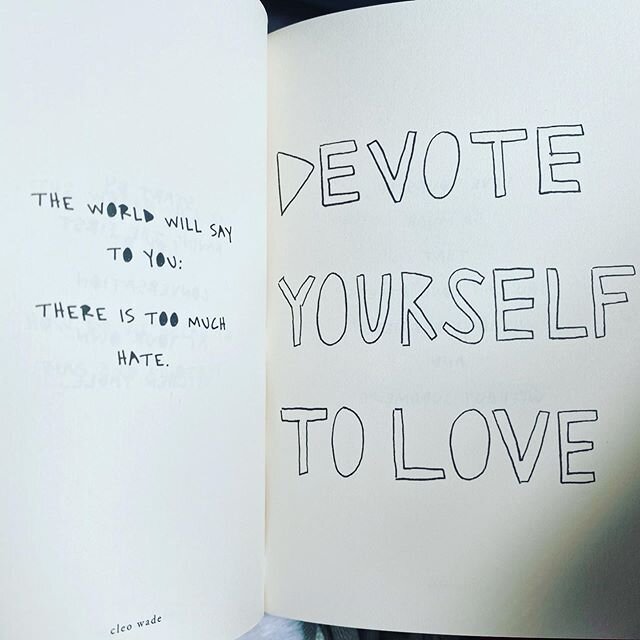 THE WORLD WILL SAY
TO YOU:
THERE IS TOO MUCH
HATE.
cleo wade
DEVOTE
YOURSELF
TO LOVE